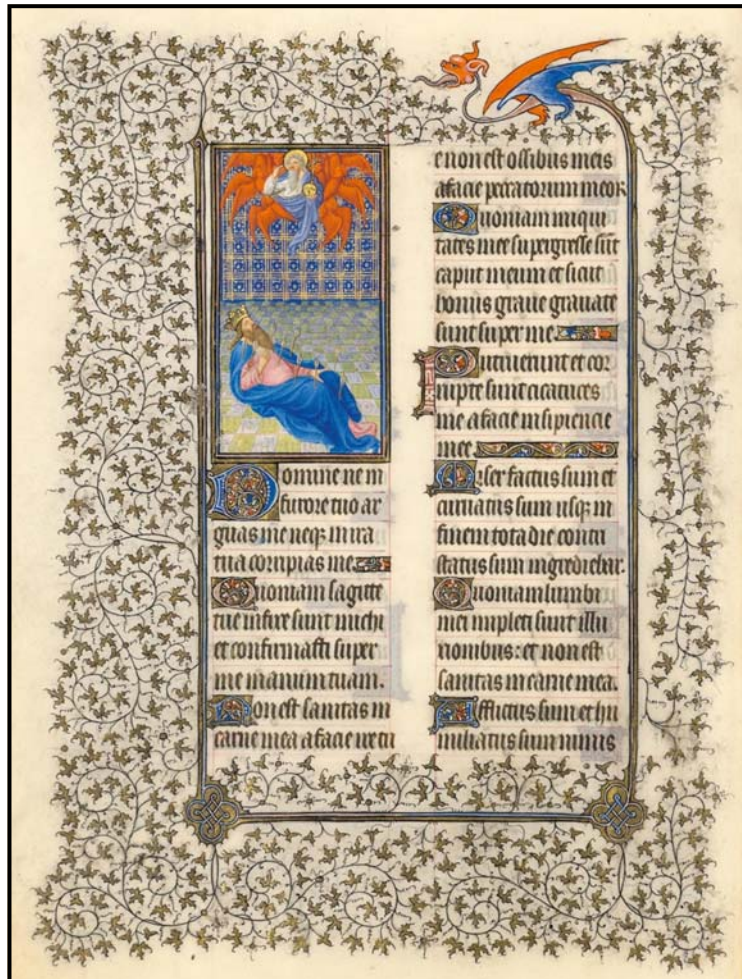 Domine ne in
furore tuo ar
guas me neqꝫ in ira
tua corripias me.
Quoniam sagitte
tue infixe sunt michi
et confirmasti super
me manum tuam.
Non est sanitas in
carne mea a facie ire tu
e non est ossibus meis
a facie peccatorum meoꝝ
Quoniam iniqui
tates mee supergresse sūt
caput meum et sicut
honus graue grauate
sunt super me.
Putruerunt et cor
rupte sunt cicatrices
me a facie insipiencie
mee.
Miser factus sum et
curuatus sum usqꝫ in
finem tota die contri
status sum ingrediebar.
Quoniam lumbi
mei impleti sunt illu
sionibus: et non est
sanitas in carne mea.
Afflictus sum et hu
miliatus sum nimis